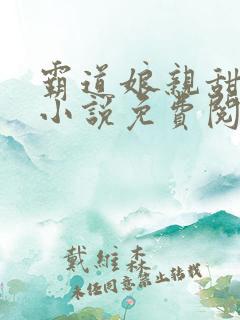 霸道娘親甜
小說免費閱
戴維森
未經同意禁止轉載